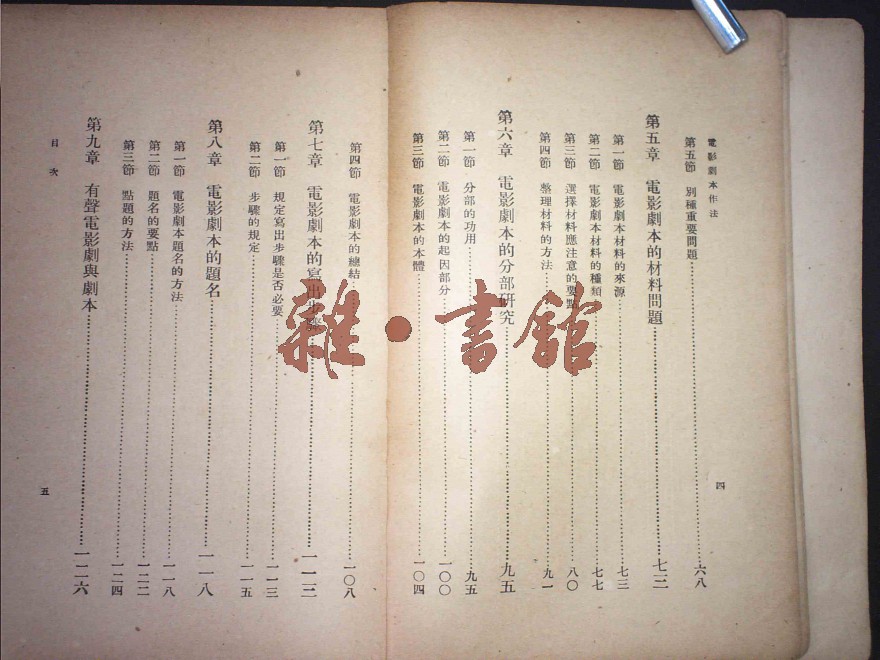 電影劇本作法
第五節 別種重要問題……六八
第五章 電影劇本的材料問題……七三
第一節 電影劇本材料的來源……七三
第二節 電影劇本材料的種類……七七
第三節 選擇材料應注意的要點……八〇
第四節 整理材料的方法……九一
第六章 電影劇本的分部研究……九五
第一節 分部的功用……九五
第二節 電影劇本的起因部分……一〇〇
第三節 電影劇本的本體……一〇四
四
第四節 電影劇本的總結……一〇八
第七章 電影劇本的寫出步驟……一一三
第一節 規定寫出步驟是否必要……一一三
第二節 步驟的規定……一一五
第八章 電影劇本的題名……一一八
第一節 電影劇本題名的方法……一一八
第二節 題名的要點……一二二
第三節 點題的方法……一二四
第九章 有聲電影劇與劇本……一二六
目次
五
雜·書館